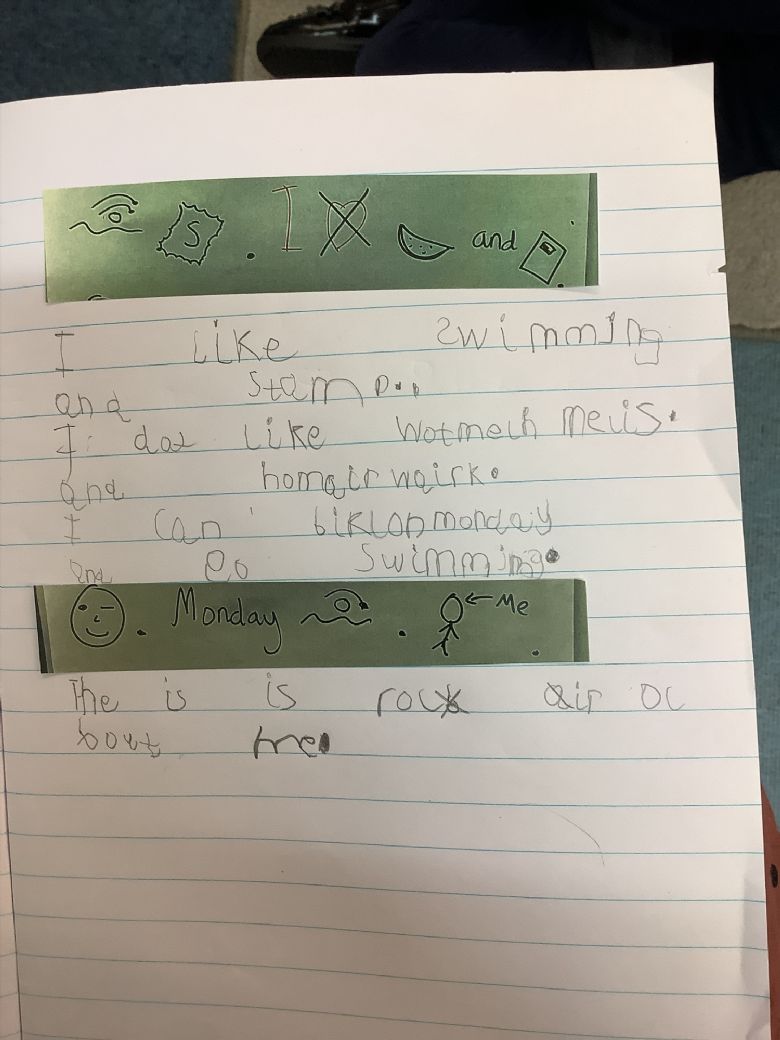 S . I and
I like swimming
and stamp..
I dot like wotmelh melis.
and homair wairk.
I can biklonmonday
and Go swimming.
. Monday . ← Me .
The is is rock air oc
bout me